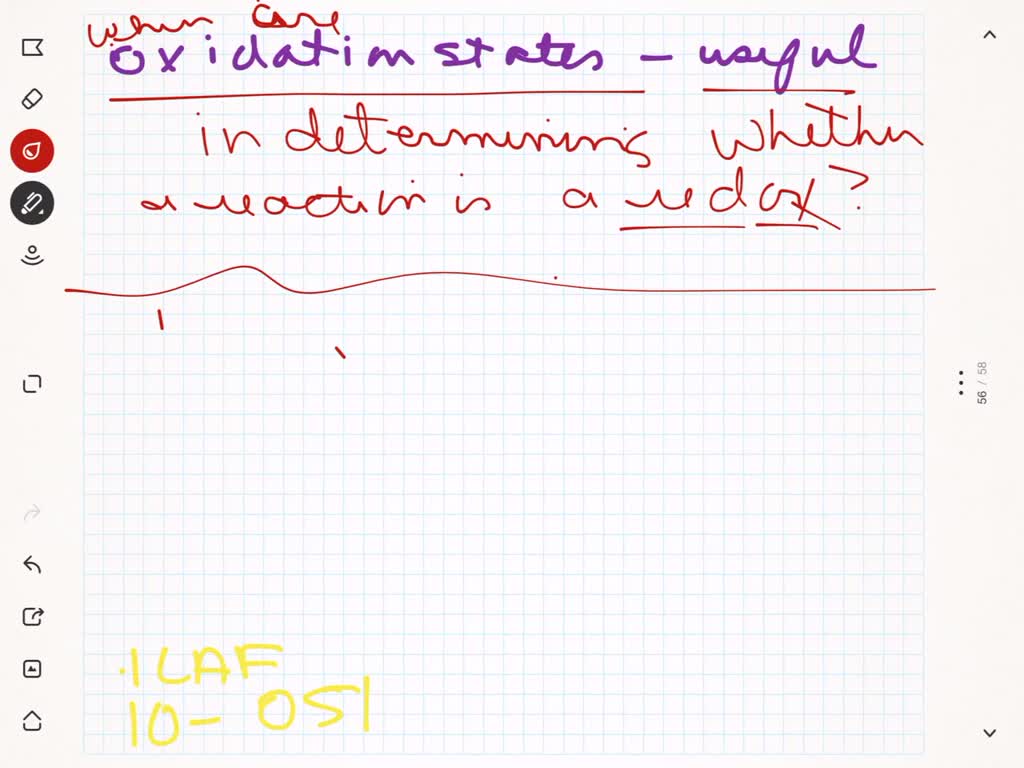 when are
oxidation states - useful
in determining whether
a reaction is a redox?
56 / 58
1LAF
10- OS1